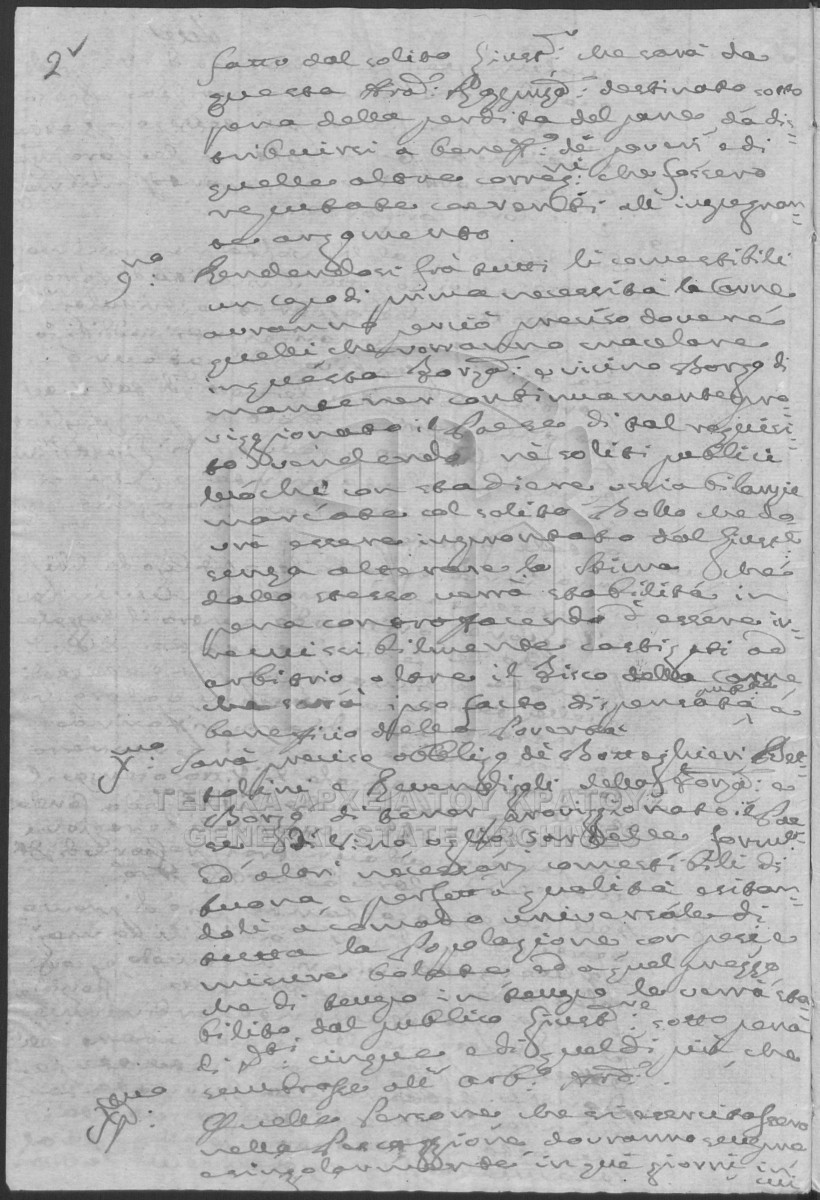 2
fatto dal solito Giust.r che sarà da
questa Prod.: Reggenza: destinato sotto
pena della perdita del pane da dis=
tribuirsi a benef.o de poveri e di
quelle altre correz.ni: che fossero
reputate coerenti all'impegnan=
te argomento.
9.no: Rendendosi frà tutti li comestibili
un capo di prima necessità la Carne
avranno perciò preciso dovere
quelli che vorranno macelare
in questa Forza: e vicino Borgo di
mantener continuamente pro=
viggionato il Paese di tal requisi=
to vendendo nè soliti publici
luochi con stadiere ossia bilanzie
marcate col solito Bollo che do
vrà essere improntato dal Giust.r
senza alterare la stima che
dallo stesso verrà stabilità in
pena controfacendo d'essere ir=
remissibilmente castigati ad
arbitrio oltre il Fisco della Carne
che sarà ipso facto dispensata subito à
beneficio della Povertà
X.mo: Sarà preciso obbligo dè Bottoghieri Bet=
tolini e Revendigoli della Forza: e
Borgo di tener proviggionato il Pae
se di Vino oglio Sardelle form.
ed altri necessarj comestibili di
buona e perfetta qualità esitan=
doli a comodo universale di
tutta la Popolazione con pesi e
misure bolate ed a quel prezzo
che di tempo in tempo le verrà sta=
bilito dal publico Giust.re: sotto pena
di cinque e di quel di più che
sembrasse all' arb.o
XI.mo: Quelle Persone che si esercitassero
nella Pescaggione dovranno sempre
e singolarmente in què giorni in
cui
ΓΕΝΙΚΑ ΑΡΧΕΙΑ ΤΟΥ ΚΡΑΤΟΥΣ
GENERAL STATE ARCHIVES